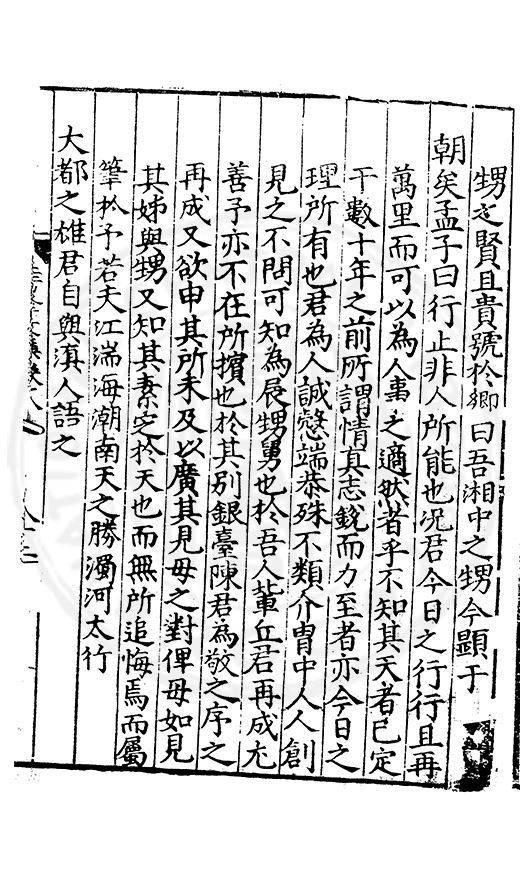 甥之賢且貴號於鄉曰吾湘中之甥今顯于
朝矣孟子曰行止非人所能也况君今日之行行且再
萬里而可以為人事之適然者乎不知其天者已定
于數十年之前所謂情真志銳而力至者亦今日之
理所有也君為人誠慤端恭殊不類介胄中人人創
見之不問可知為辰甥舅也於吾人輩丘君再成尤
善予亦不在所擯也於其別銀臺陳君為敬之序之
再成又欲申其所未及以廣其見母之對俾母如見
其姊與甥又知其素定於天也而無所追悔焉而屬
筆於予若夫江湍海潮南天之勝濁河太行
大都之雄君自與滇人語之